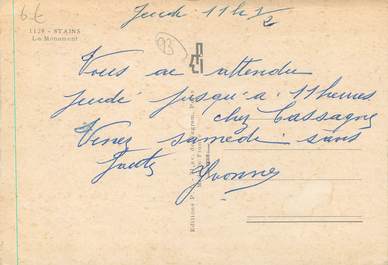 6€
Jeudi 11h 1/2
1129 - STAINS
Le Monument
93
Vous ai attendu
jeudi jusqu'à 11 heures
chez Cassagne
Venez samedi sans
faute
Yvonne
Editions P.